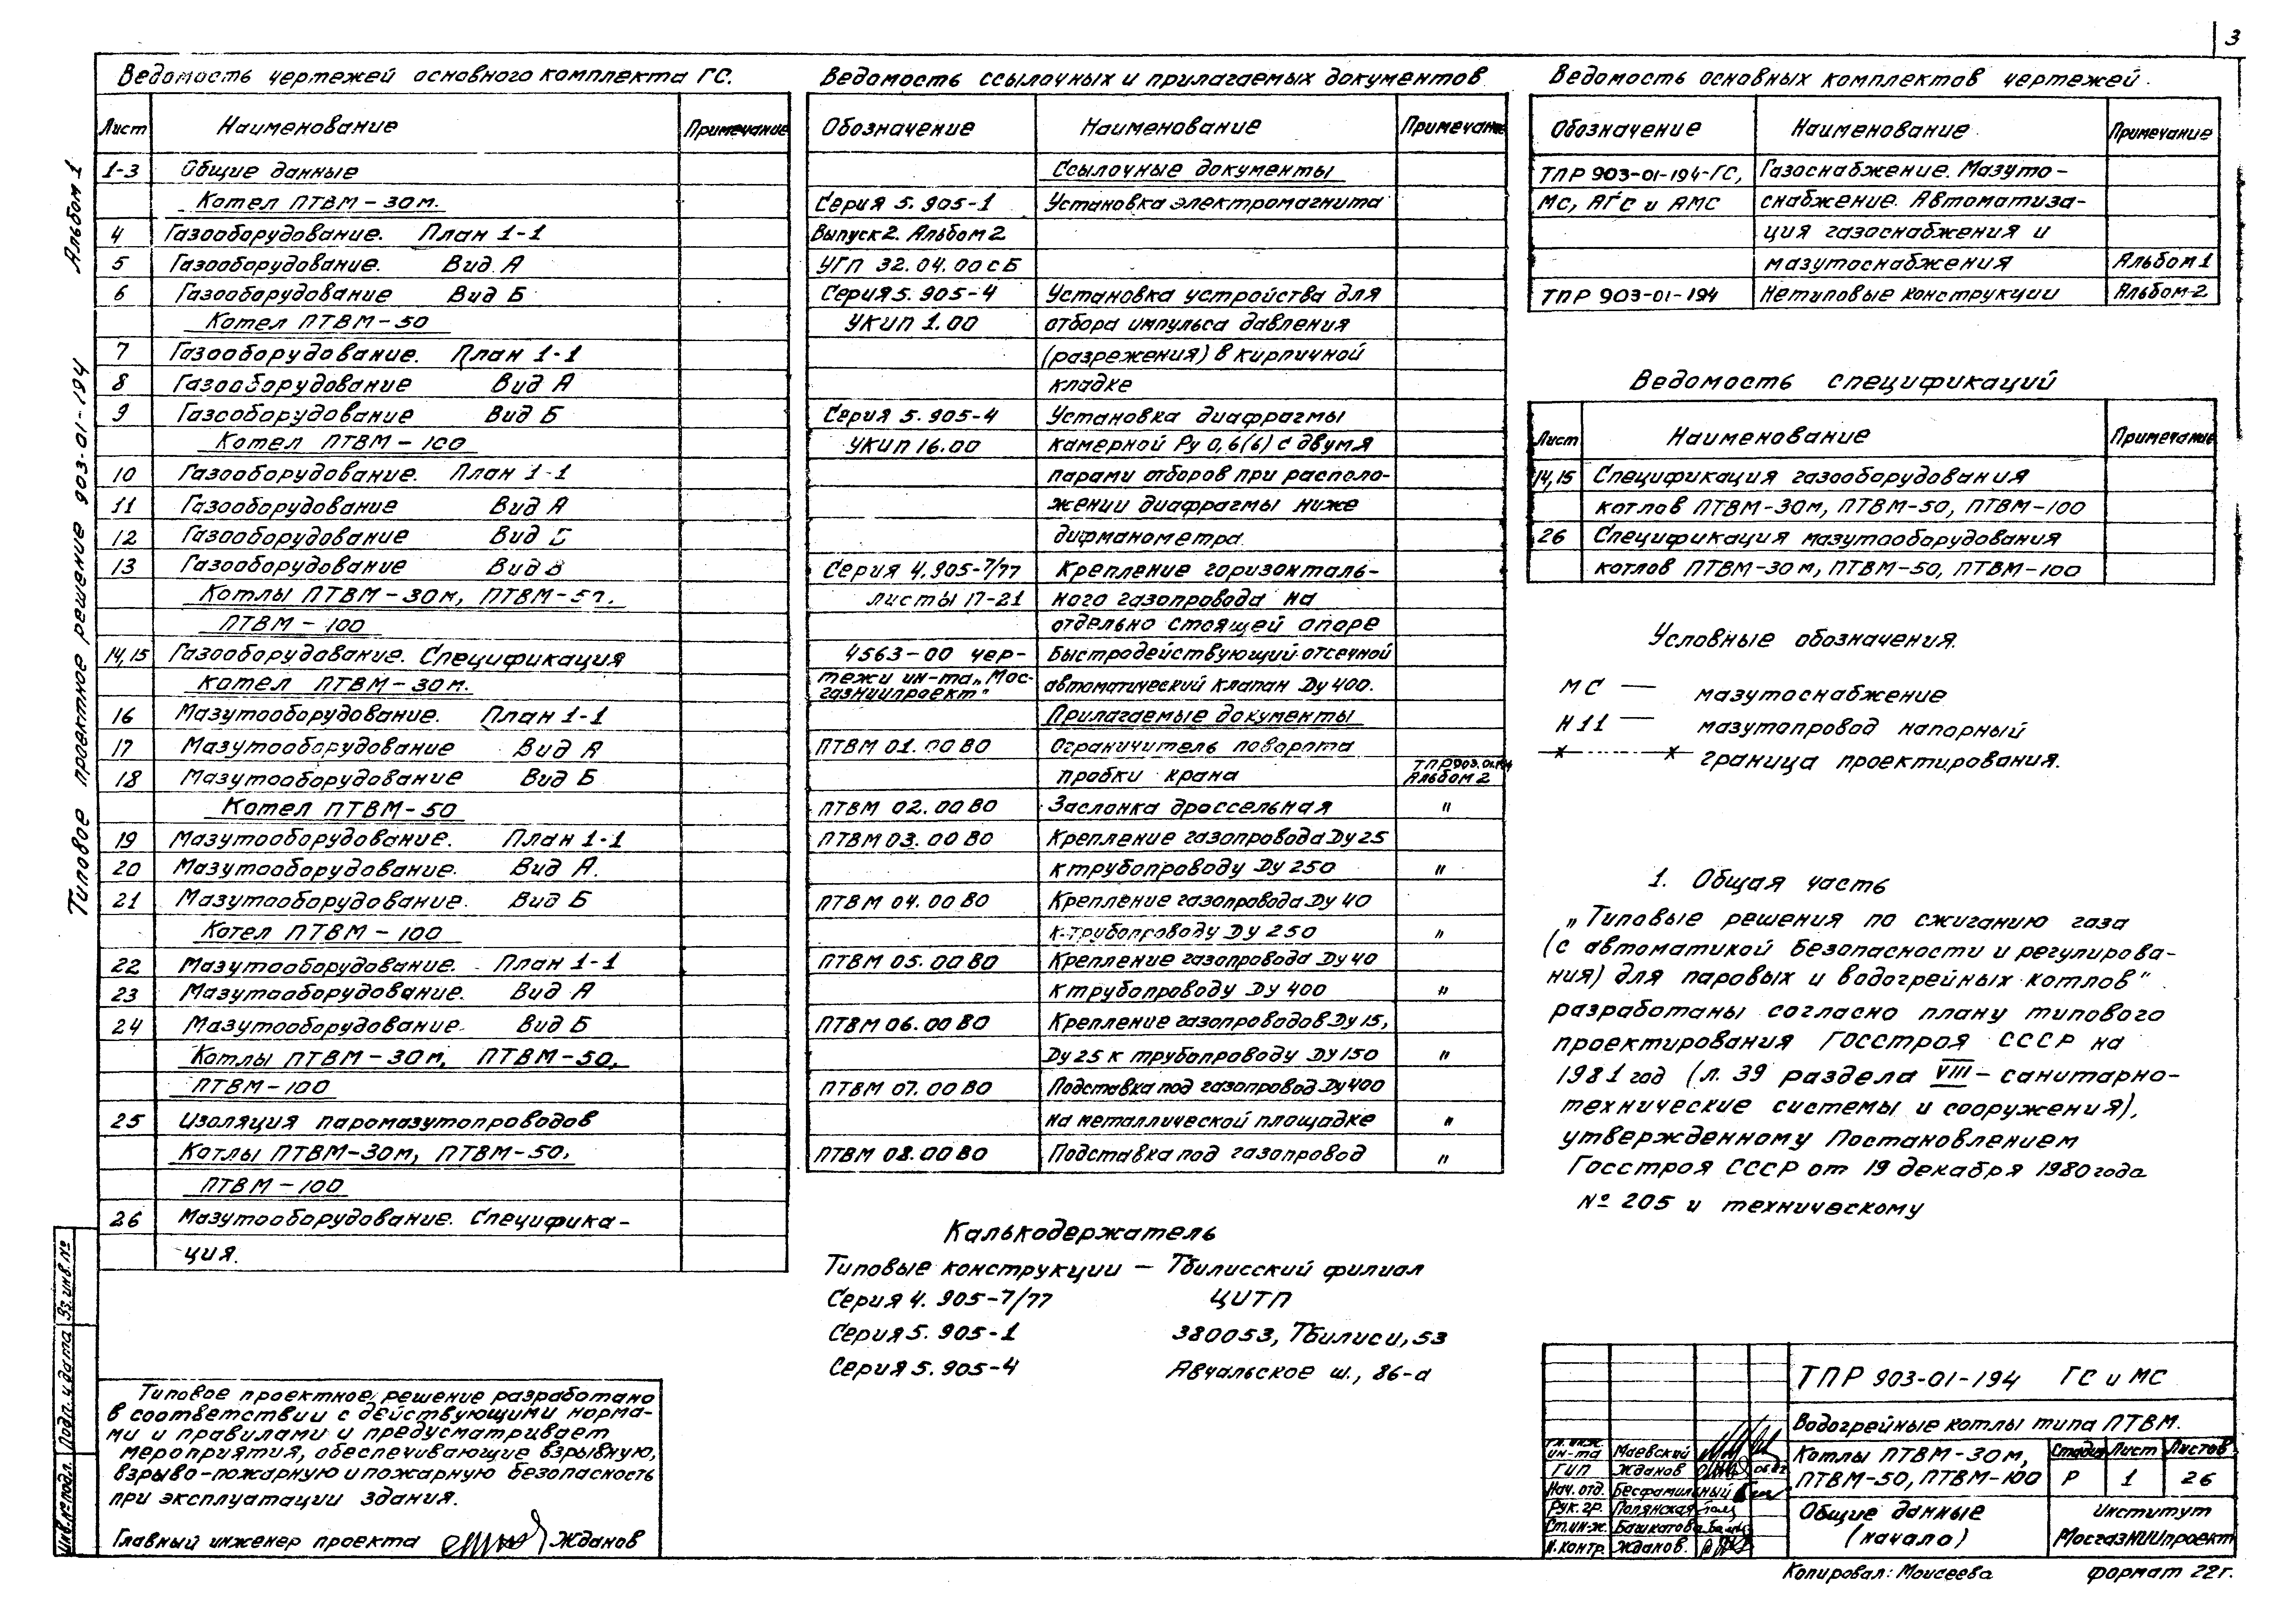 3
Альбом 1
Типовое проектное решение 903-01-194
Ведомость чертежей основного комплекта ГС.
Лист Наименование Примечание
1-3 Общие данные
Котел ПТВМ-30м.
4 Газооборудование. План 1-1
5 Газооборудование. Вид А
6 Газооборудование Вид Б
Котел ПТВМ-50
7 Газооборудование. План 1-1
8 Газооборудование Вид А
9 Газооборудование Вид Б
Котел ПТВМ-100
10 Газооборудование. План 1-1
11 Газооборудование Вид А
12 Газооборудование Вид Б
13 Газооборудование Вид В
Котлы ПТВМ-30м, ПТВМ-50,
ПТВМ-100
14,15 Газооборудование. Спецификация
Котел ПТВМ-30м.
16 Мазутооборудование. План 1-1
17 Мазутооборудование Вид А
18 Мазутооборудование Вид Б
Котел ПТВМ-50
19 Мазутооборудование. План 1-1
20 Мазутооборудование. Вид А.
21 Мазутооборудование. Вид Б
Котел ПТВМ-100
22 Мазутооборудование. План 1-1
23 Мазутооборудование. Вид А
24 Мазутооборудование. Вид Б
Котлы ПТВМ-30м, ПТВМ-50,
ПТВМ-100
25 Изоляция паромазутопроводов
Котлы ПТВМ-30м, ПТВМ-50,
ПТВМ-100
26 Мазутооборудование. Специфика-
ция.
Типовое проектное решение разработано
в соответствии с действующими норма-
ми и правилами и предусматривает
мероприятия, обеспечивающие взрывную,
взрыво-пожарную и пожарную безопасность
при эксплуатации здания.
Главный инженер проекта Жданов
Инв.№ подл. Подп. и дата Вз. инв. №
Ведомость ссылочных и прилагаемых документов
Обозначение Наименование Примечание
Ссылочные документы
Серия 5.905-1 Установка электромагнита
Выпуск 2. Альбом 2
УГП 32.04.00 СБ
Серия 5.905-4 Установка устройства для
УКИП 1.00 отбора импульса давления
(разрежения) в кирпичной
кладке
Серия 5.905-4 Установка диафрагмы
УКИП 16.00 камерной Ру 0,6(6) с двумя
парами отборов при располо-
жении диафрагмы ниже
дифманометра.
Серия 4.905-7/77 Крепление горизонталь-
листы 17-21 ного газопровода на
отдельно стоящей опоре
4563-00 чер- Быстродействующий отсечной
тежи ин-та „Мос- автоматический клапан Ду 400.
газниипроект"
Прилагаемые документы
ПТВМ 01.00 ВО Ограничитель поворота
пробки крана ТПР 903.01.194
Альбом 2
ПТВМ 02.00 ВО Заслонка дроссельная "
ПТВМ 03.00 ВО Крепление газопровода Ду 25
к трубопроводу Ду 250 "
ПТВМ 04.00 ВО Крепление газопровода Ду 40
к трубопроводу Ду 250 "
ПТВМ 05.00 ВО Крепление газопровода Ду 40
к трубопроводу Ду 400 "
ПТВМ 06.00 ВО Крепление газопроводов Ду 15,
Ду 25 к трубопроводу Ду 150 "
ПТВМ 07.00 ВО Подставка под газопровод Ду 400
на металлической площадке "
ПТВМ 08.00 ВО Подставка под газопровод "
Калькодержатель
Типовые конструкции — Тбилисский филиал
Серия 4.905-7/77 ЦИТП
Серия 5.905-1 380053, Тбилиси, 53
Серия 5.905-4 Авчальское ш., 86-а
Ведомость основных комплектов чертежей.
Обозначение Наименование Примечание
ТПР 903-01-194-ГС, Газоснабжение. Мазуто-
МС, АГС и АМС снабжение. Автоматиза-
ция газоснабжения и
мазутоснабжения Альбом 1
ТПР 903-01-194 Нетиповые конструкции Альбом 2
Ведомость спецификаций
Лист Наименование Примечание
14,15 Спецификация газооборудования
котлов ПТВМ-30м, ПТВМ-50, ПТВМ-100
26 Спецификация мазутооборудования
котлов ПТВМ-30м, ПТВМ-50, ПТВМ-100
Условные обозначения.
МС — мазутоснабжение
Н11 — мазутопровод напорный
граница проектирования.
1. Общая часть
„Типовые решения по сжиганию газа
(с автоматикой безопасности и регулирова-
ния) для паровых и водогрейных котлов"
разработаны согласно плану типового
проектирования Госстроя СССР на
1981 год (л. 39 раздела VIII – санитарно-
технические системы и сооружения),
утвержденному Постановлением
Госстроя СССР от 19 декабря 1980 года
№ 205 и техническому
ТПР 903-01-194 ГС и МС
Водогрейные котлы типа ПТВМ.
Гл. инж. ин-та Маевский
ГИП Жданов
Нач. отд. Бесфамильный
Рук. гр. Полянская
Ст. инж. Башкатова
Н. контр. Жданов.
Котлы ПТВМ-30м,
ПТВМ-50, ПТВМ-100
Стадия Лист Листов
Р 1 26
Общие данные
(начало)
Институт
МосгазНИИпроект
Копировал: Моисеева формат 22г.